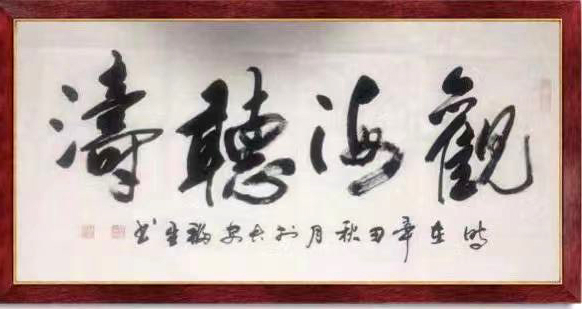 觀海聽濤
時在辛丑秋月於長安